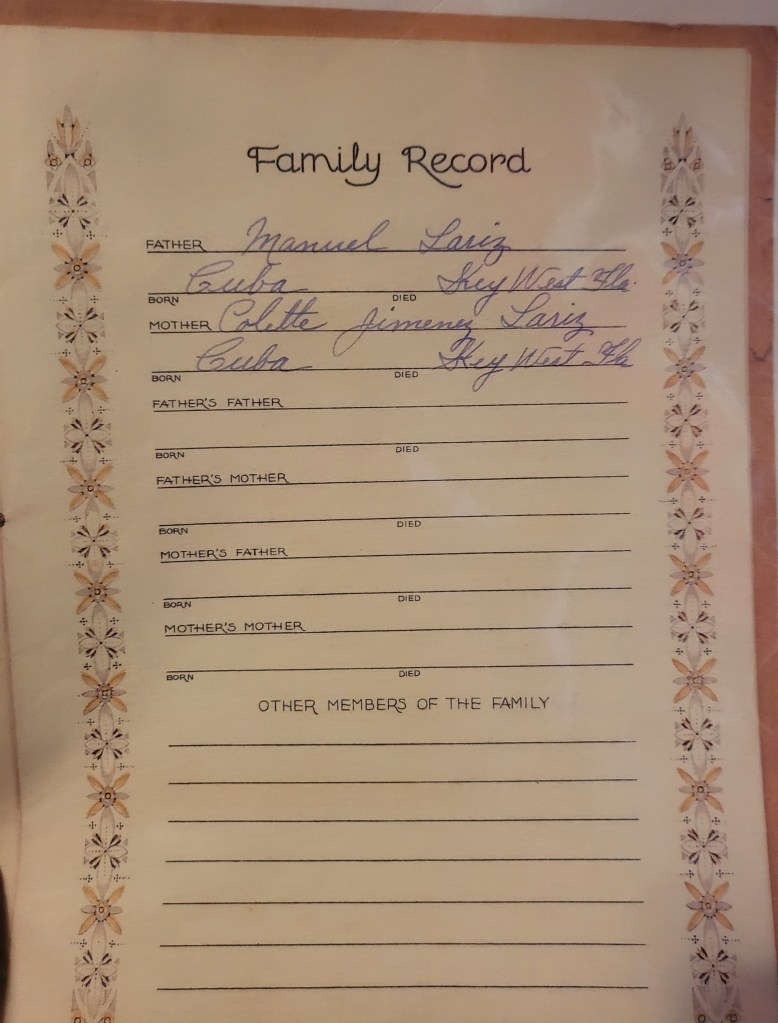 Family Record
FATHER Manuel Lariz
Cuba Key West Fla.
BORN DIED
MOTHER Colette Jimenez Lariz
Cuba Key West Fla
BORN DIED
FATHER'S FATHER
BORN DIED
FATHER'S MOTHER
BORN DIED
MOTHER'S FATHER
BORN DIED
MOTHER'S MOTHER
BORN DIED
OTHER MEMBERS OF THE FAMILY